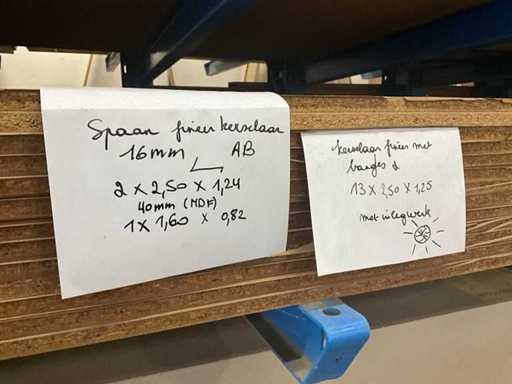 Spaan fineer kerselaar
16mm AB
2 x 2,50 x 1,24
40mm (MDF)
1 x 1,60 x 0,82
kerselaar fineer met
13 x 2,50 x 1,25
met inlegwerk